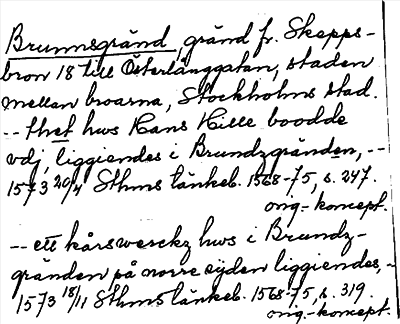 Brunnsgränd, gränd fr. Skepps-
bron 18 till Österlånggatan, staden
mellan broarna, Stockholms stad.
-- thet hws Hans Hille boodde
vdj, liggiendes i Brundzgränden, --
1573 20/4 Sthms tänkeb. 1568-75, s. 247.
orig.-koncept.
-- ett kårswerckz hws i Brundz-
gränden på norre syden liggiendes, -
1573 18/11 Sthms tänkeb. 1568-75, s. 319.
orig.-koncept.